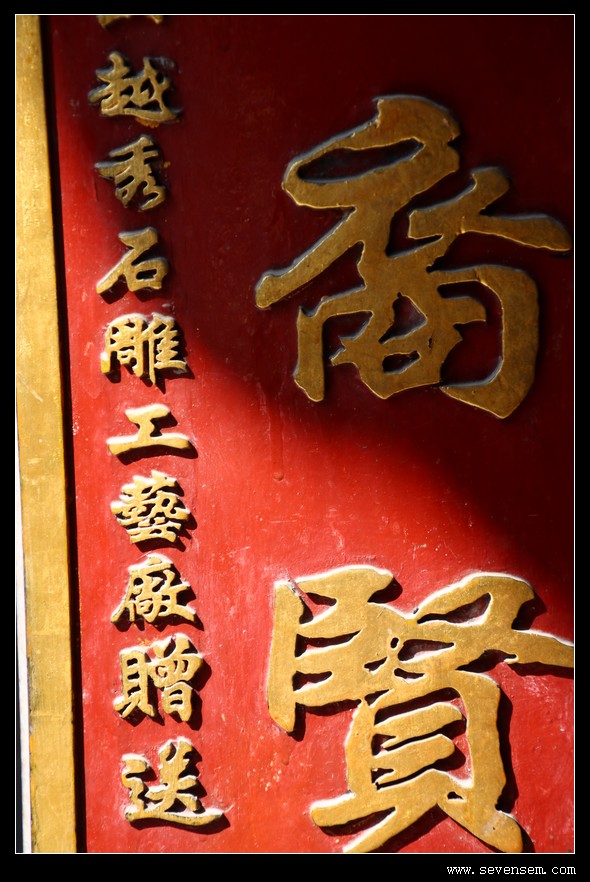 裔賢
越秀石雕工藝廠贈送
www.sevensem.com